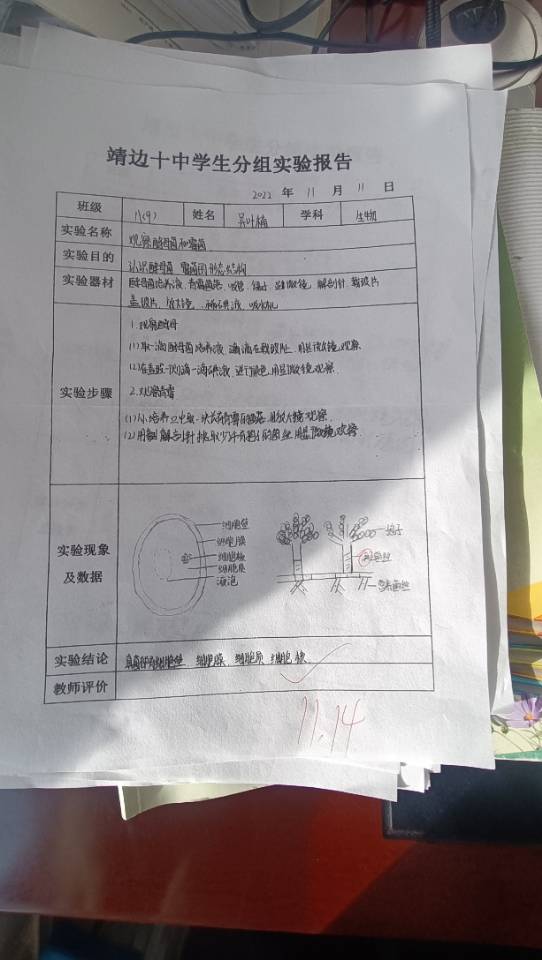 靖边十中学生分组实验报告
2022 年 11 月 11 日
班级 八(9) 姓名 吴叶楠 学科 生物
实验名称 观察酵母菌和霉菌
实验目的 认识酵母菌 霉菌的形态结构
实验器材 酵母菌培养液、青霉菌落、吸管、镊子、显微镜、解剖针、载玻片
盖玻片、放大镜、稀碘液、吸水纸
实验步骤
1.观察酵母
(1)取一滴酵母菌培养液 滴在载玻片上,用显微镜观察
(2)在盖玻一侧滴一滴碘液,进行染色,用显微镜观察
2.观察青霉
(1)从培养 取一块 青霉的 ,用放大镜观察
(2)用 解剖针挑取少许有孢子的菌丝,用显微镜观察
实验现象
及数据
细胞壁
细胞膜
细胞核
细胞质
液泡
孢子
菌丝
营养菌丝
实验结论 真菌都有细胞壁 细胞膜、细胞质 细胞核
教师评价
11.14